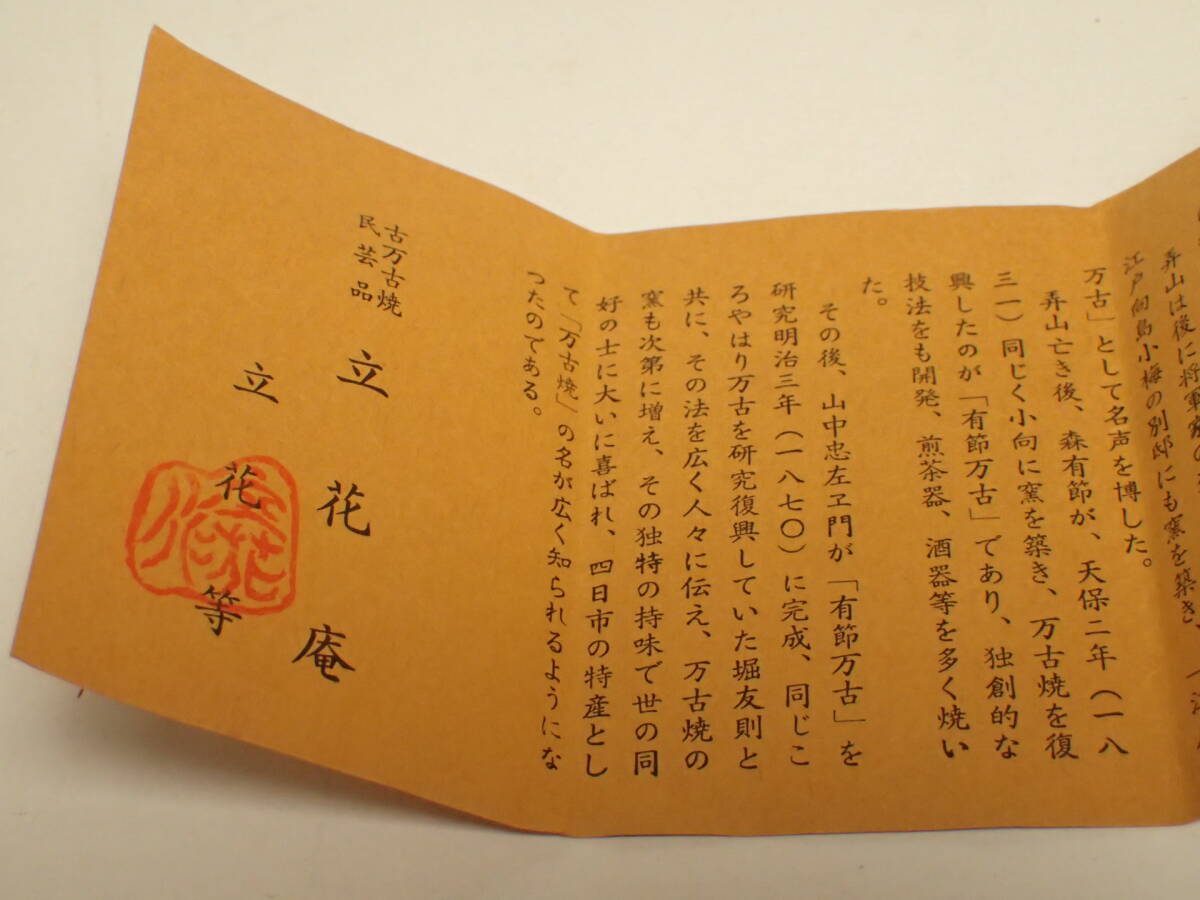 弄山は後に将軍家の
江戸向島小梅の別邸にも窯を築き、
万古」として名声を博した。
弄山亡き後、森有節が、天保二年（一八
三一）同じく小向に窯を築き、万古焼を復
興したのが「有節万古」であり、独創的な
技法をも開発、煎茶器、酒器等を多く焼い
た。
その後、山中忠左ヱ門が「有節万古」を
研究明治三年（一八七〇）に完成、同じこ
ろやはり万古を研究復興していた堀友則と
共に、その法を広く人々に伝え、万古焼の
窯も次第に増え、その独特の持味で世の同
好の士に大いに喜ばれ、四日市の特産とし
て「万古焼」の名が広く知られるようにな
つたのである。
古万古焼
民芸品
立花庵
立花等